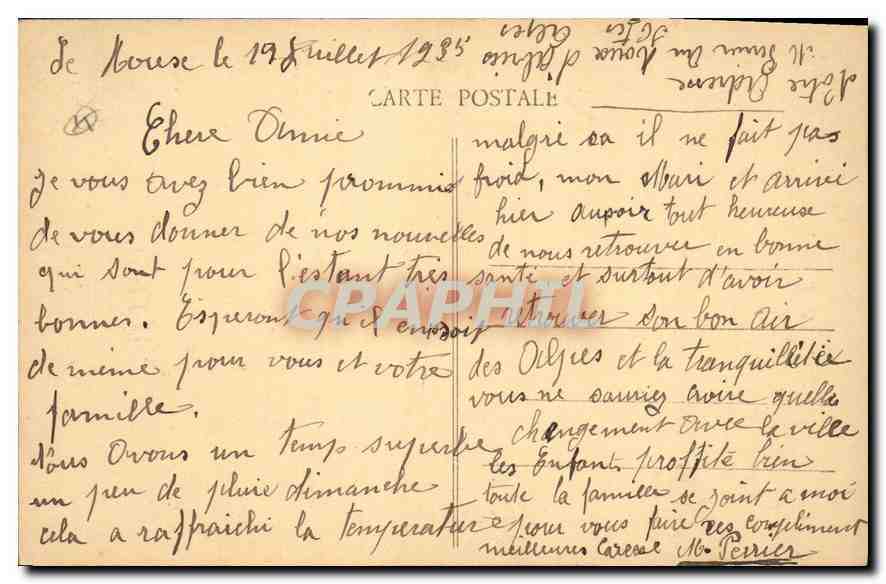 Le Mouse le 19 Juillet 1935
CARTE POSTALE
Chere Amie
Je vous avez bien prommis
de vous donner de nos nouvelles
qui sont pour l'estant tres
bonnes. Esperont qu'il en soit
de même pour vous et votre
famille.
Nous avons un temp superbe
un peu de pluie dimanche
cela a raffraichi la temperature
malgré sa il ne fait pas
froid, mon Mari et arrivé
hier ausoir tout heureuse
de nous retrouver en bonne
santé et surtout d'avoir
retrouver son bon air
des Alpes et la tranquillitée
vous ne sauriez croire quelle
changement avec la ville
les Enfants proffite bien
toute la famille se joint a moi
pour vous faire ces compliment
meilleures Caresse Me Perrier
Notre Adresse
M Perrier
Alpes
CPAPHIL